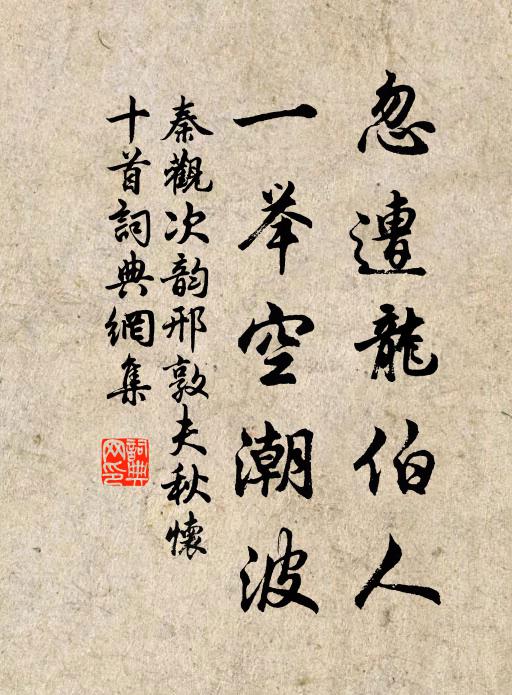 忽遭龍伯人
一举空潮波
秦觀次韵邢敦夫秋懷
十首詞典網集
詞典
网印